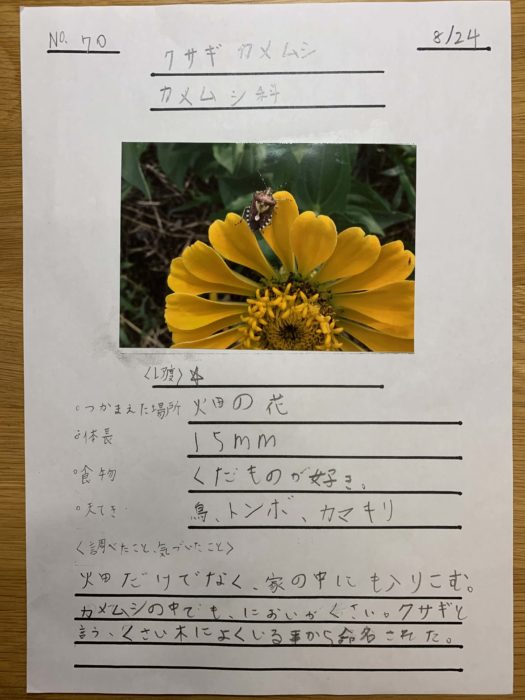 No. 70
8/24
クサギカメムシ
カメムシ科
〈レア度〉☆
○つかまえた場所 火田の花
○体長 15mm
○食物 くだものが好き。
○天てき 鳥、トンボ、カマキリ
〈調べたこと、気づいたこと〉
火田だけでなく、家の中にも入りこむ。
カメムシの中でも、においがくさい。クサギと
言う、くさい木によくいる事から命名された。